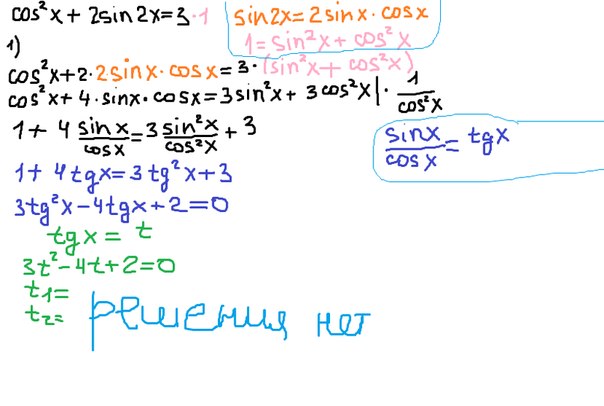 cos²x + 2sin2x = 3 · 1
sin2x = 2sinx · cosx
1 = sin²x + cos²x
1)
cos²x + 2 · 2sinx · cosx = 3 · (sin²x + cos²x)
cos²x + 4 · sinx · cosx = 3sin²x + 3cos²x | · 1/cos²x
1 + 4 sinx/cosx = 3 sin²x/cos²x + 3
sinx/cosx = tgx
1 + 4tgx = 3tg²x + 3
3tg²x - 4tgx + 2 = 0
tgx = t
3t² - 4t + 2 = 0
t1 =
t2 =
решения нет